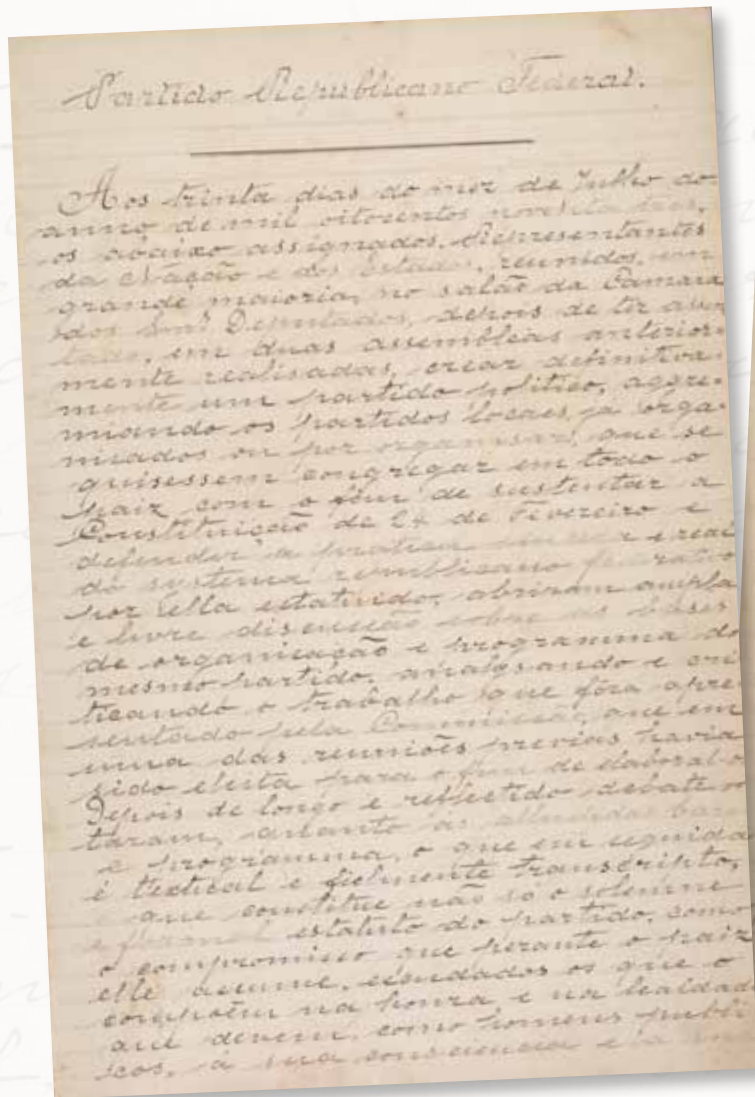 Partido Republicano Federal.
Aos trinta dias do mez de Julho do
anno de mil oitocentos noventa tres,
os abaixo assignados, Representantes
da Nação e dos Estados, reunidos, em
grande maioria, no salão da Camara
dos Snrs Deputados, depois de ter assen
tado, em duas assembléas anterior
mente realisadas, crear definitiva
mente um partido politico, aggre
miando os partidos locaes, ja orga
nisados ou por organisar, que se
quisessem congregar em todo o
paiz com o fim de sustentar a
Constituição de 24 de Fevereiro e
defender a pratica e real
do systema republicano federativo
por ella estatuido, abriram ampla
e livre discussão sobre as bases
de organisação e programma do
mesmo partido, analysando e cri
ticando o trabalho que fôra apre
sentado pela Commissão, que em
uma das reuniões previas havia
sido eleita para o fim de elaboral-o
Depois de longo e reflectido debate
taram, quanto ás alludidas bases
e programma, o que em seguida
é textual e fielmente transcripto,
e que constitue não só o solemne
e formal estatuto do partido, como
o compromisso que perante o paiz
elle assume, escudados os que o
compõem na honra e na lealdade
que devem, como homens publi
cos, á sua consciencia e á